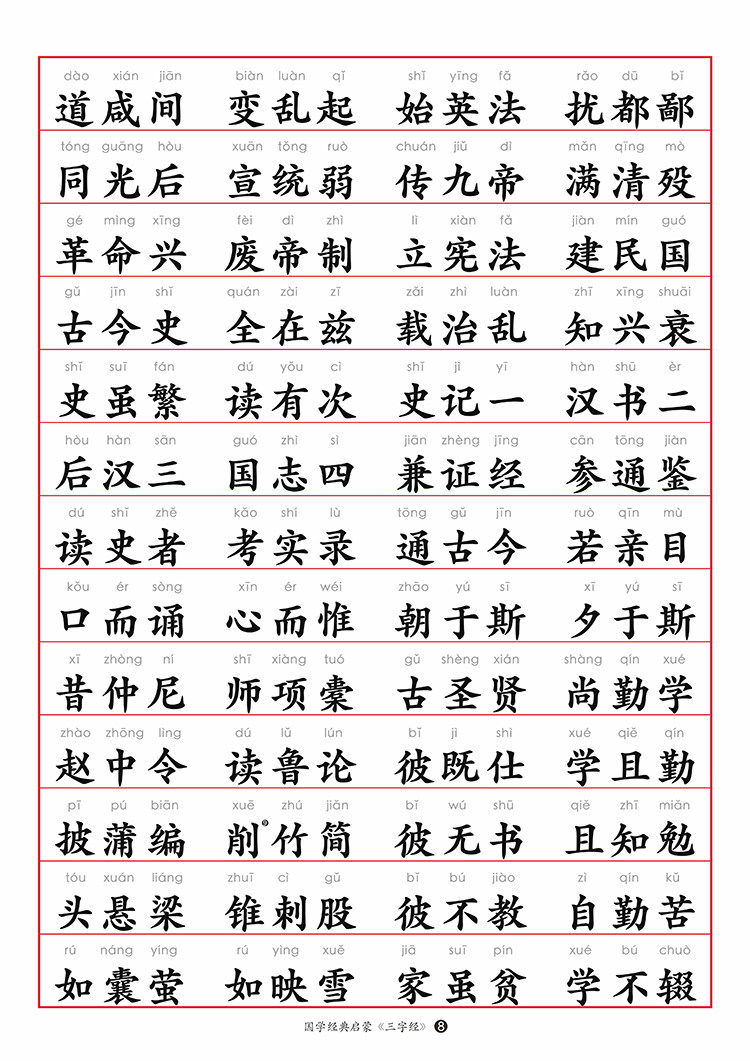 dào xián jiān biàn luàn qǐ shǐ yīng fǎ rǎo dū bǐ
道咸间 变乱起 始英法 扰都鄙
tóng guāng hòu xuān tǒng ruò chuán jiǔ dì mǎn qīng mò
同光后 宣统弱 传九帝 满清殁
gé mìng xīng fèi dì zhì lì xiàn fǎ jiàn mín guó
革命兴 废帝制 立宪法 建民国
gǔ jīn shǐ quán zài zī zǎi zhì luàn zhī xīng shuāi
古今史 全在兹 载治乱 知兴衰
shǐ suī fán dú yǒu cì shǐ jì yī hàn shū èr
史虽繁 读有次 史记一 汉书二
hòu hàn sān guó zhì sì jiān zhèng jīng cān tōng jiàn
后汉三 国志四 兼证经 参通鉴
dú shǐ zhě kǎo shí lù tōng gǔ jīn ruò qīn mù
读史者 考实录 通古今 若亲目
kǒu ér sòng xīn ér wéi zhāo yú sī xī yú sī
口而诵 心而惟 朝于斯 夕于斯
xī zhòng ní shī xiàng tuó gǔ shèng xián shàng qín xué
昔仲尼 师项橐 古圣贤 尚勤学
zhào zhōng lìng dú lǔ lún bǐ jì shì xué qiě qín
赵中令 读鲁论 彼既仕 学且勤
pī pú biān xuē zhú jiǎn bǐ wú shū qiě zhī miǎn
披蒲编 削竹简 彼无书 且知勉
tóu xuán liáng zhuī cì gǔ bǐ bú jiào zì qín kǔ
头悬梁 锥刺股 彼不教 自勤苦
rú náng yíng rú yìng xuě jiā suī pín xué bú chuò
如囊萤 如映雪 家虽贫 学不辍
国学经典启蒙《三字经》 8